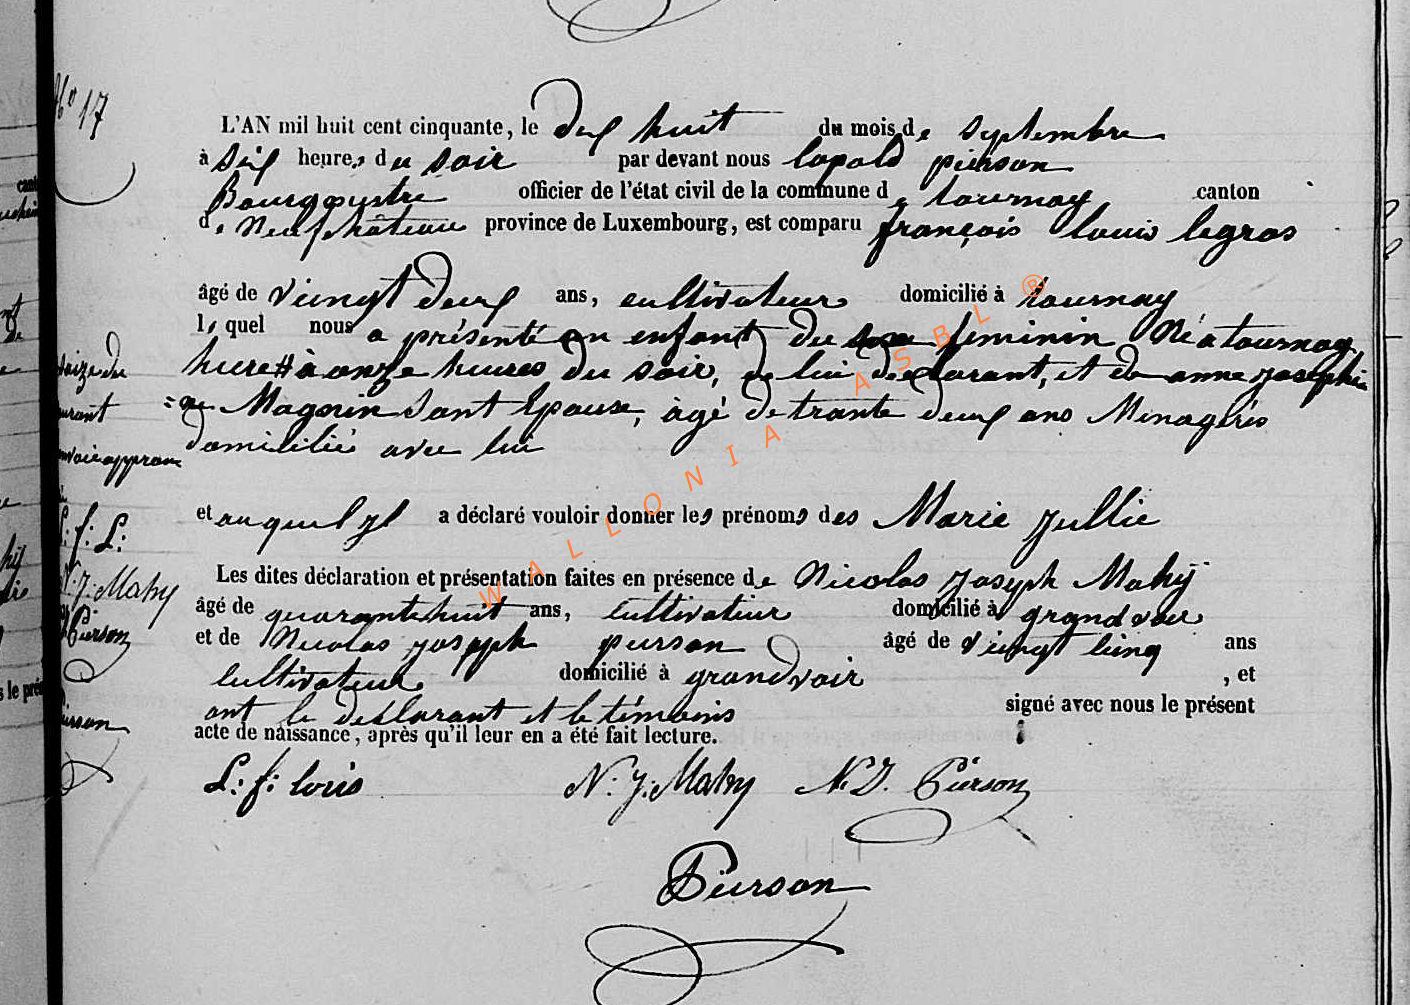 No 17
L'AN mil huit cent cinquante, le dix huit du mois de septembre
à six heures du soir par devant nous lopold pierson
Bourgmestre officier de l'état civil de la commune de tournay canton
de Neufchâteau province de Luxembourg, est comparu françois louis legros
âgé de vingt deux ans, cultivateur domicilié à tournay
lequel nous a présenté un enfant du sexe feminin Né a tournay
hierre # à onze heures du soir, de lui déclarant, et de anne josephi
=ne Magnin Sont Epouse, àgé de trante deux ans Menagéré
domicilié avec lui
et auquel yl a déclaré vouloir donner les prénoms des Marie Jullie
Les dites déclaration et présentation faites en présence de Nicolas Joseph Mahÿ
âgé de quarantehuit ans, Cultivateur domicilié à grandvoir
et de Nicolas Joseph pierson âgé de vingt cinq ans
Cultivateur domicilié à grandvoir , et
ont le déclarant et le témoins signé avec nous le présent
acte de naissance, après qu'il leur en a été fait lecture.
L: f: louis N: J: Mahy N. J. Pierson
Pierson
# seize du
courant
renvoie approuvé
L: f: L:
N: J: Mahy
Pierson
Pierson
WALLONIA ASBL ®